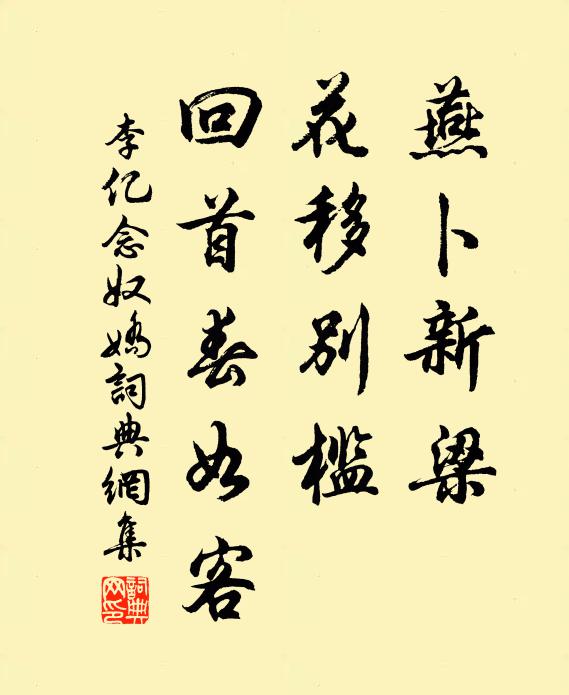 燕卜新梁
花移别槛
回首春如客
李亿念奴娇詞典網集
詞典网印